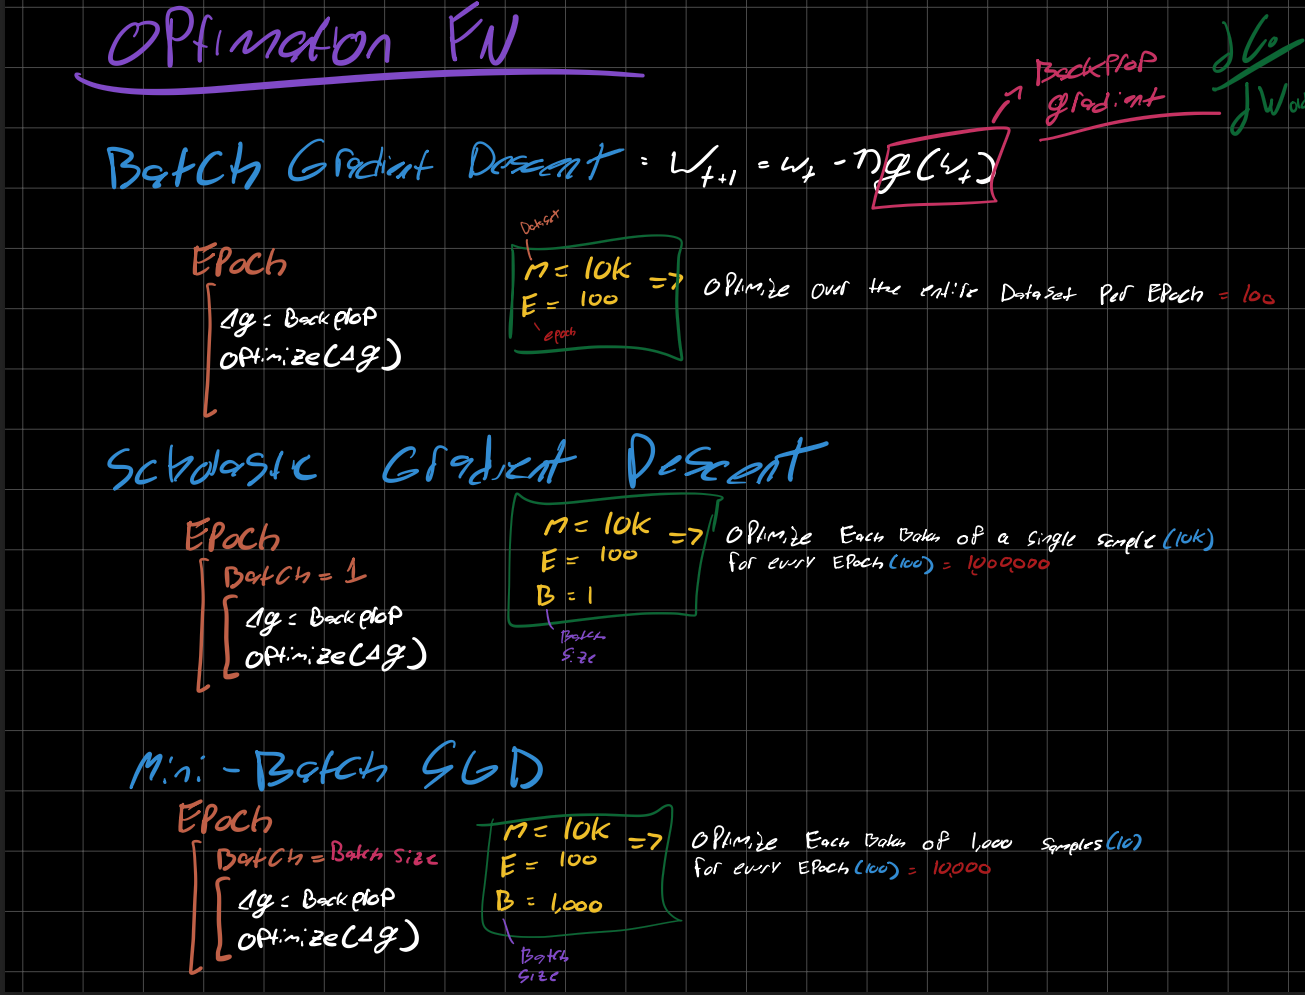 OPtimation FN
BackProP
gradient
BatCh Gradient Descent = W_{t+1} = w_t - ηg(w_t)
EPoch
Δg = BackProP
OPtimize(Δg)
Dataset
M = 10K =>
E = 100
epoch
OPtimize over the entire DataSet Per EPoch = 100
Scholastic Gradient Descent
EPoch
BatCh = 1
Δg = BackProP
OPtimize(Δg)
M = 10K =>
E = 100
B = 1
Batch
Size
OPtimize Each Batch of a single sample (10K)
for every EPoch (100) = 1,000,000
Mini-Batch SGD
EPoch
BatCh = Batch Size
Δg = BackProP
OPtimize(Δg)
M = 10K =>
E = 100
B = 1,000
Batch
Size
OPtimize Each Batch of 1,000 samples (10)
for every EPoch (100) = 10,000